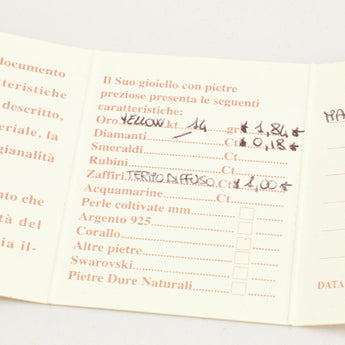 documento
tteristiche
descritto,
eriale, la
igianalità
to che
tà del
ia il-
Il Suo gioiello con pietre
preziose presenta le seguenti
caratteristiche:
Oro YELLOW kt 14 gr * 1,84 *
Diamanti Ct * 0,18 *
Smeraldi Ct
Rubini Ct
Zaffiri TERMO DIFFUSO Ct * 1,00 *
Acquamarine Ct
Perle coltivate mm
Argento 925
Corallo
Altre pietre
Swarovski
Pietre Dure Naturali
MA
DATA